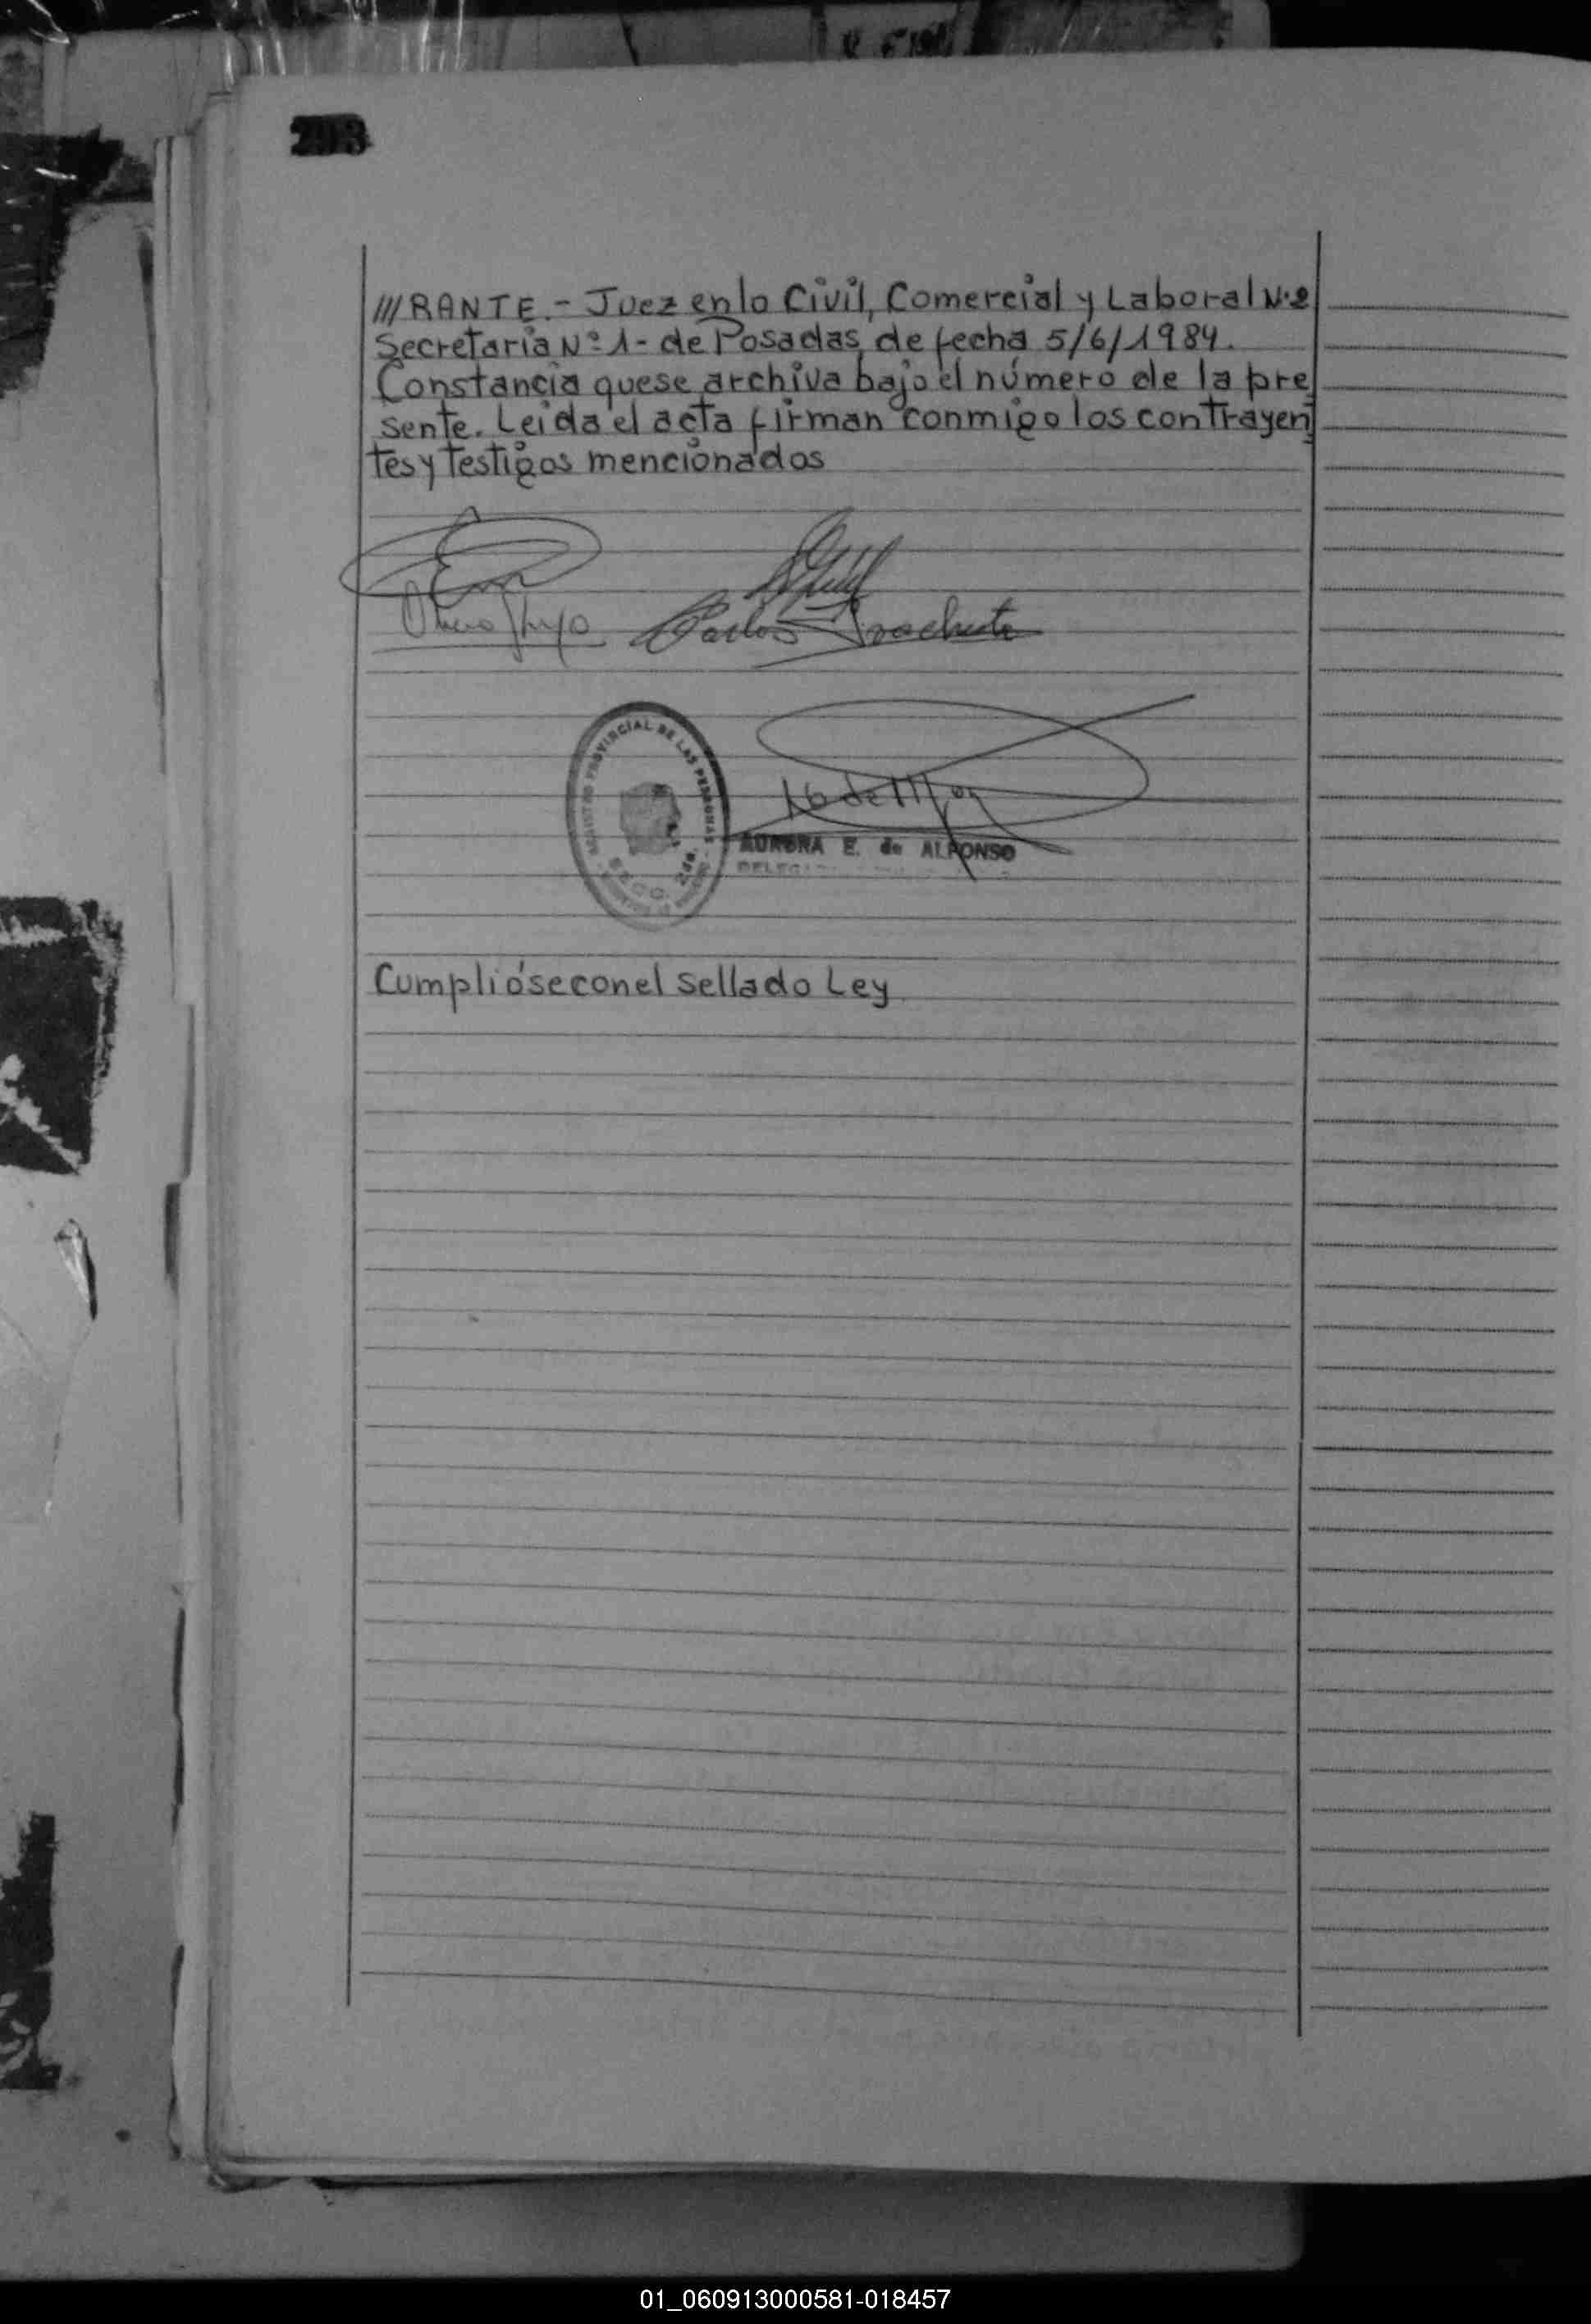 ///RANTE.- Juez en lo Civil, Comercial y Laboral Nº2
Secretaria Nº 1- de Posadas, de fecha 5/6/1984.
Constancia que se archiva bajo el número de la pre
sente. Leida el acta firman conmigo los contrayen
tes y testigos mencionados
Carlos
PROVINCIAL DE LAS PERSONAS
SECC. 2da.
AURORA E. de ALFONSO
Cumplióse con el sellado Ley
01_060913000581-018457